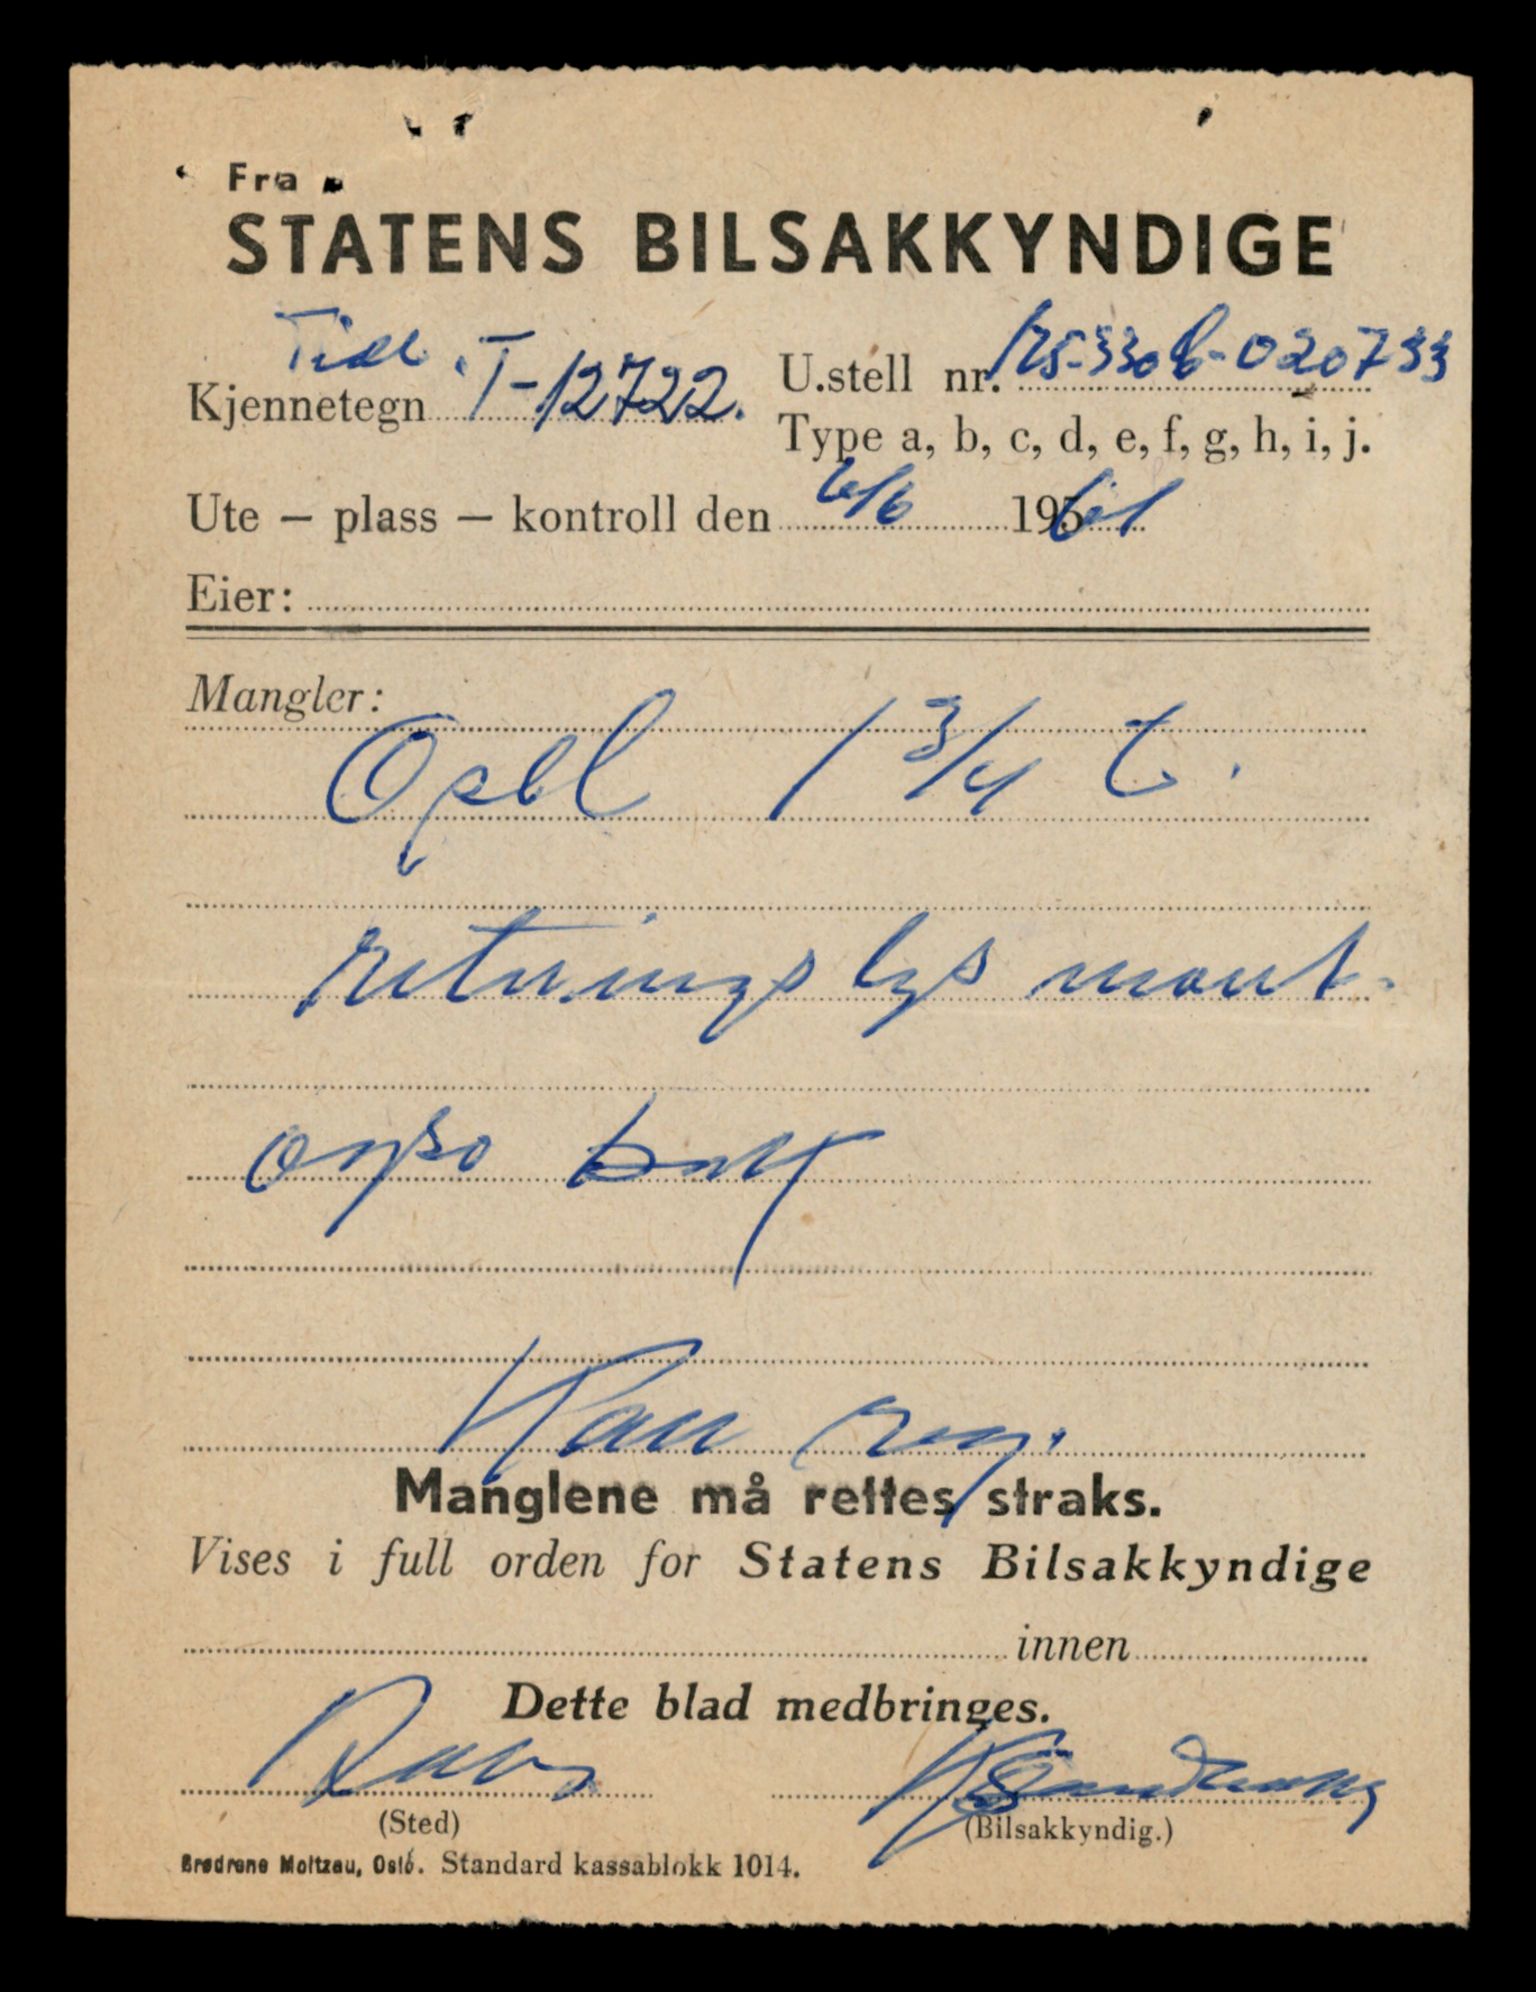 Fra
STATENS BILSAKKYNDIGE
Tidl.
Kjennetegn T-12722. U.stell nr.
Type a, b, c, d, e, f, g, h, i, j.
Ute – plass – kontroll den 6/6 1961
Eier:
Mangler:
Opel 1 3/4 t.
retningslys mont.
Kan reg.
Manglene må rettes straks.
Vises i full orden for Statens Bilsakkyndige
innen
Dette blad medbringes.
(Sted)
(Bilsakkyndig.)
Brødrene Moltzau, Oslo. Standard kassablokk 1014.